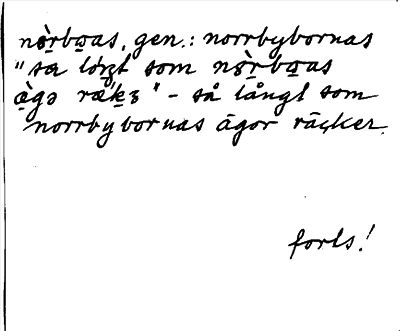 nɷ̀rbɷas, gen.: norrbybornas
"sa lóŋt som nɷ̀rbɷas
ɑ̀gə ræ̀kɜ" – så långt som
norrbybornas ägor räcker.
forts!